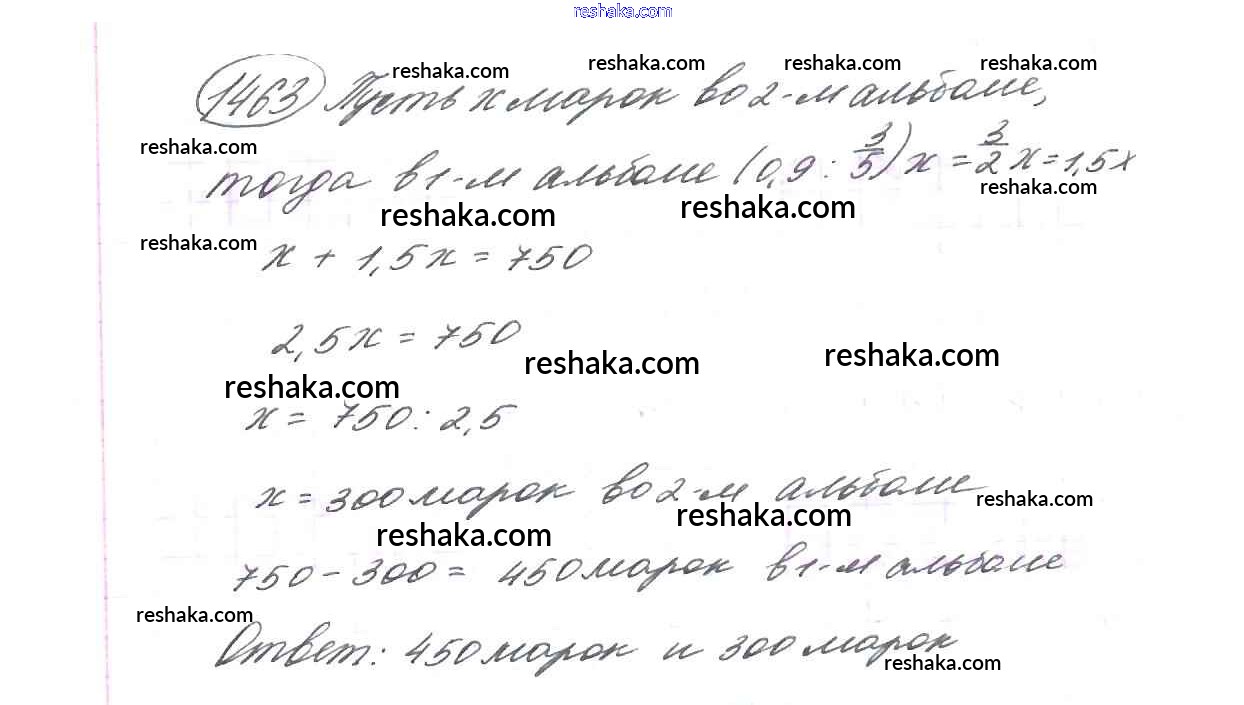 reshaka.com
reshaka.com reshaka.com reshaka.com reshaka.com
1463 Пусть x марок во 2-м альбоме,
reshaka.com
тогда в 1-м альбоме (0,9 : 3/5) x = 3/2 x = 1,5x
reshaka.com
reshaka.com reshaka.com
reshaka.com
x + 1,5x = 750
2,5x = 750
reshaka.com reshaka.com
reshaka.com
x = 750 : 2,5
x = 300 марок во 2-м альбоме
reshaka.com
reshaka.com reshaka.com
750 - 300 = 450 марок в 1-м альбоме
reshaka.com
Ответ: 450 марок и 300 марок
reshaka.com